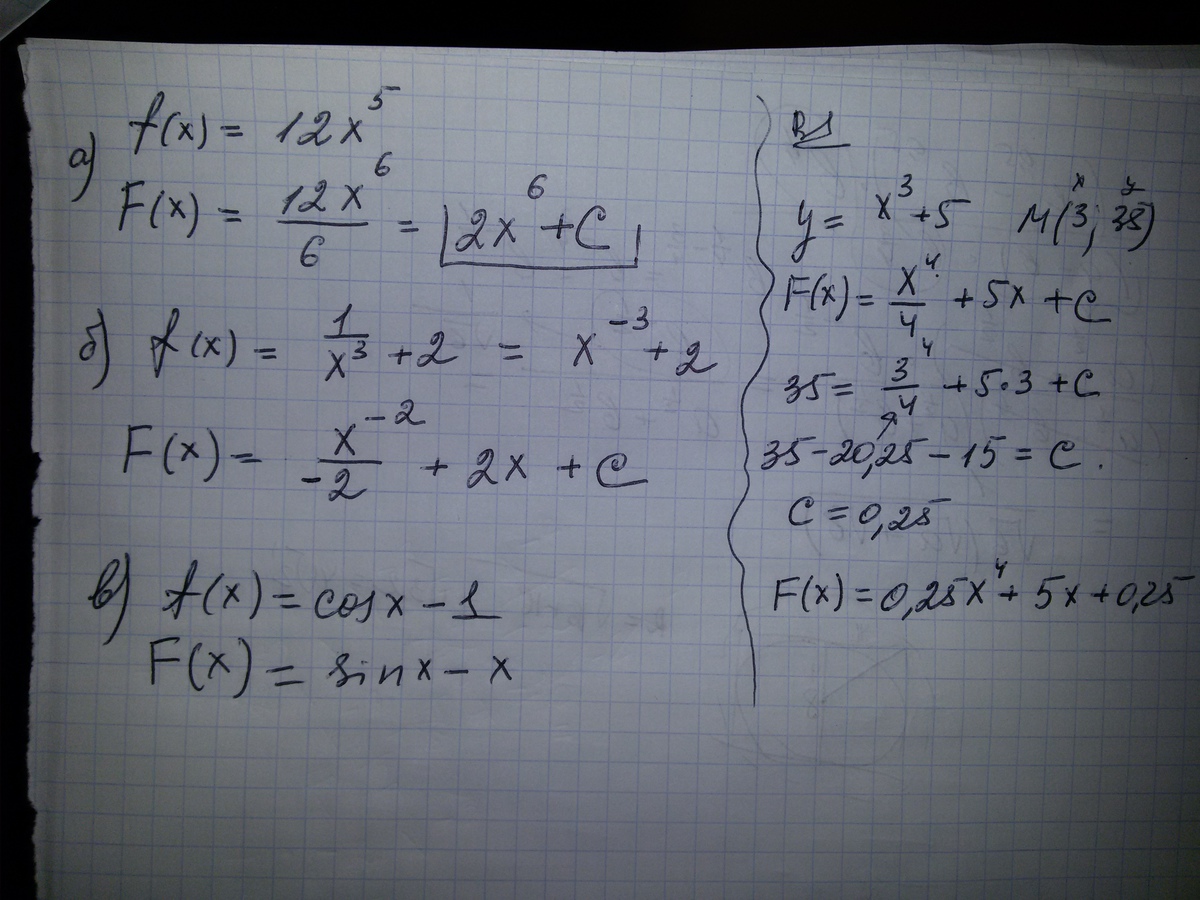 а) f(x) = 12x⁵
F(x) = 12x⁶/6 = 2x⁶ + C
б) f(x) = 1/x³ + 2 = x⁻³ + 2
F(x) = x⁻²/-2 + 2x + C
в) f(x) = cosx - 1
F(x) = sinx - x
y = x³ + 5 M(3; 35)
x y
F(x) = x⁴/4 + 5x + C
35 = 3⁴/4 + 5·3 + C
35 - 20,25 - 15 = C.
C = 0,25
F(x) = 0,25x⁴ + 5x + 0,25